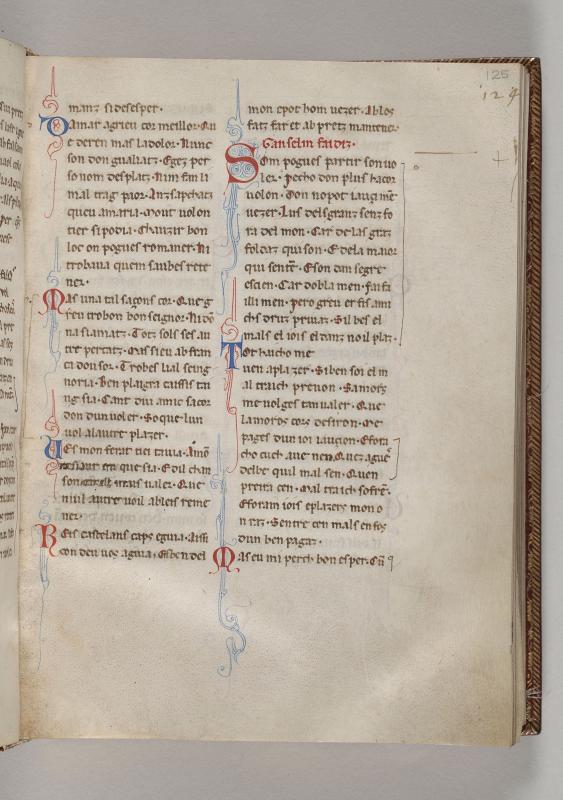 125
124
manz si desesper.
Damar agrieu cor meillor. Qu
e deren mas la dolor. Nunc
son don gualiatz. Egez per
so nom desplatz. Num fan la
mal trag paor. Anz sapchatz
queu amaria. Mout uolon
tier si podia. Chauzir bon
loc on pogues romaner. Ni
trobaua quem saubes rete
ner.
Mas una tal saçons cor. Que g
reu trobon bon seignor. Ni do
na si amatz. Totz sols ses au
tre percatz. Mas sieu ab fran
ci dousor. Trobes lial seing
noria. Ben plaigra caissis ta
ng sia. Cant dui amic sacor
don dun uoler. So que lun
uol alautre plazer.
que sia. E dil chan
son ualer. Que
niul autre uoil ableis reme
ner.
Reis castelans caps eguia. Aissi
con deu uos aguia. Esben del
mon epot hom uezer. Ab los
fatz far et ab pretz mantener.
Gauselm faiditz.
Som pogues partir son uo
ler. per ho don plus hai cor
uolon. Don no pot iauzimet
uezer. Lus dels granz senz fo
ra del mon. Car de las granz
foldaz qui son. E dela maior
qui sentr. Eson dan segre
escien. Car dobla men. fai fa
illi men. pero greu er fis ami
chs druz priuaz. Sil bes el
mals el iois el danz noil plaz.
Tot hai cho me
uen a plazer. Si ben soi el m
al traich preuon. Samors
me uolges tan ualer. Que
lamoros cors desiron. Me
pages dun ioi iauzion. Efora
cho cuch auenen. Quez ague
delbe qui l mal sen. Quen
preira cen. Mal traich sofren.
Eforam iois eplazers mon o
nraz. Sentre cen mals enfos
dun ben pagaz.
Mas eu mi perch bon esper. En